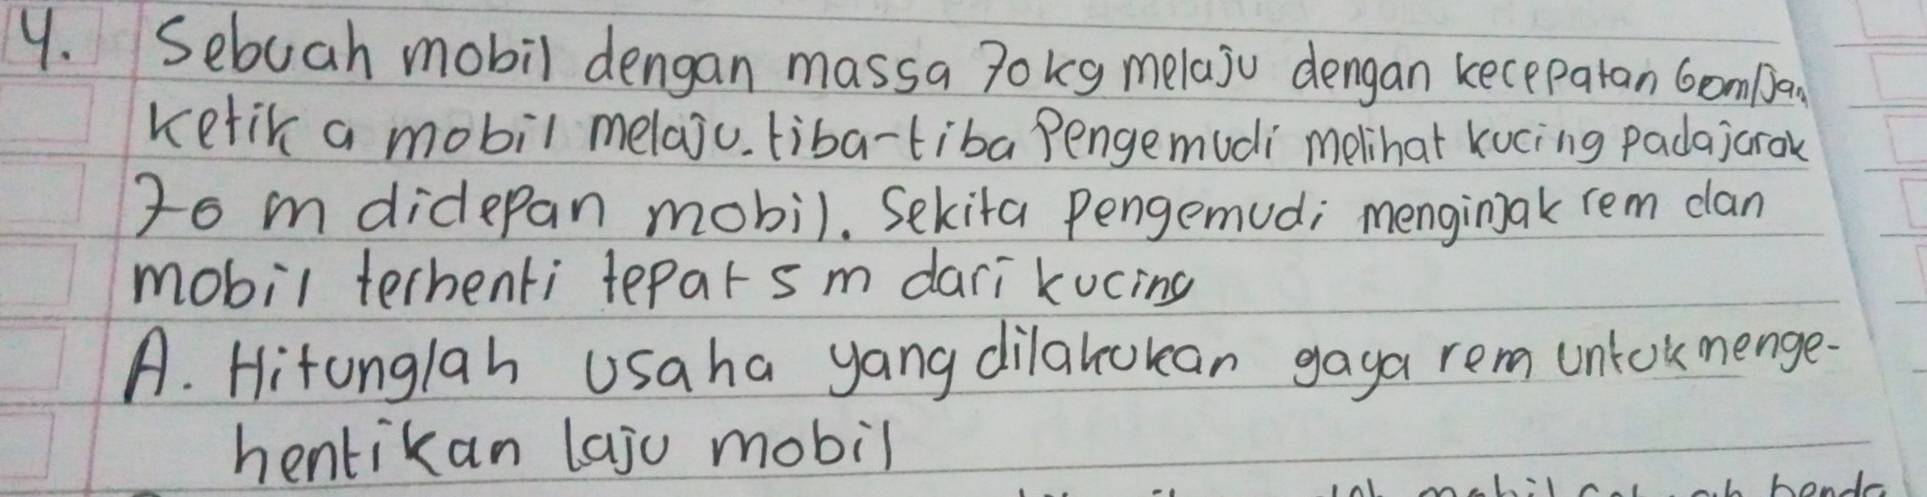 4. Sebuah mobil dengan massa 70 kg melaju dengan kecepatan 60m/Jam
Ketika mobil melaju. tiba-tiba Pengemudi melihat kucing pada jarak
70 m didepan mobil. Sekita Pengemudi menginjak rem dan
mobil terhenti tepat 5 m dari kucing
A. Hitunglah usaha yang dilakukan gaya rem untuk menge-
hentikan laju mobil